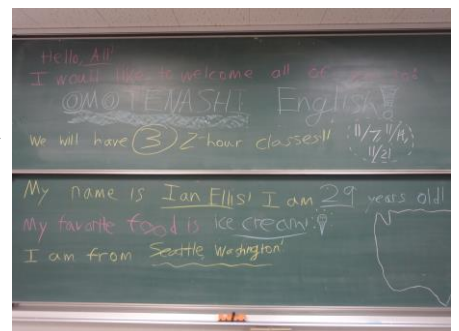 Hello, All!
I would like to welcome all of you to:
OMOTENASHI English!
We will have 3 2-hour classes!!
11/7, 11/14,
11/21
My name is Ian Ellis! I am 29 years old!
My favorite food is ice cream!
I am from Seattle, Washington!